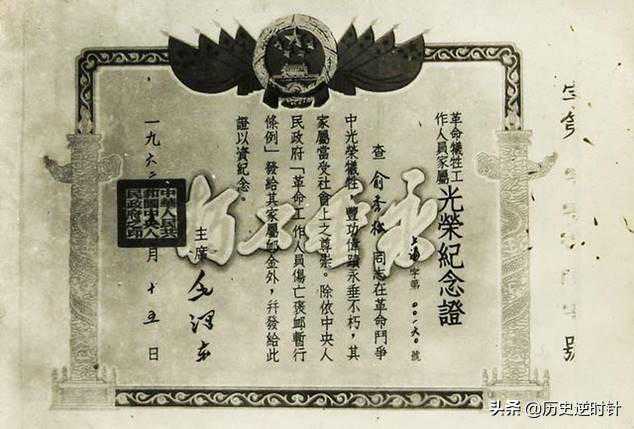 號
革命犧牲工
作人員家屬
光榮紀念證
字第〇〇一六〇號
查俞秀松同志在革命鬥爭
中光榮犧牲，豐功偉蹟永垂不朽，其
家屬當受社會上之尊崇。除依中央人
民政府「革命工作人員傷亡褒卹暫行
條例」發給其家屬卹金外，幷發給此
證以資紀念。
主席 毛澤东
一九六二 月十五日
中華人民共
和國中央人
民政府之印
头条 @历史逆时针